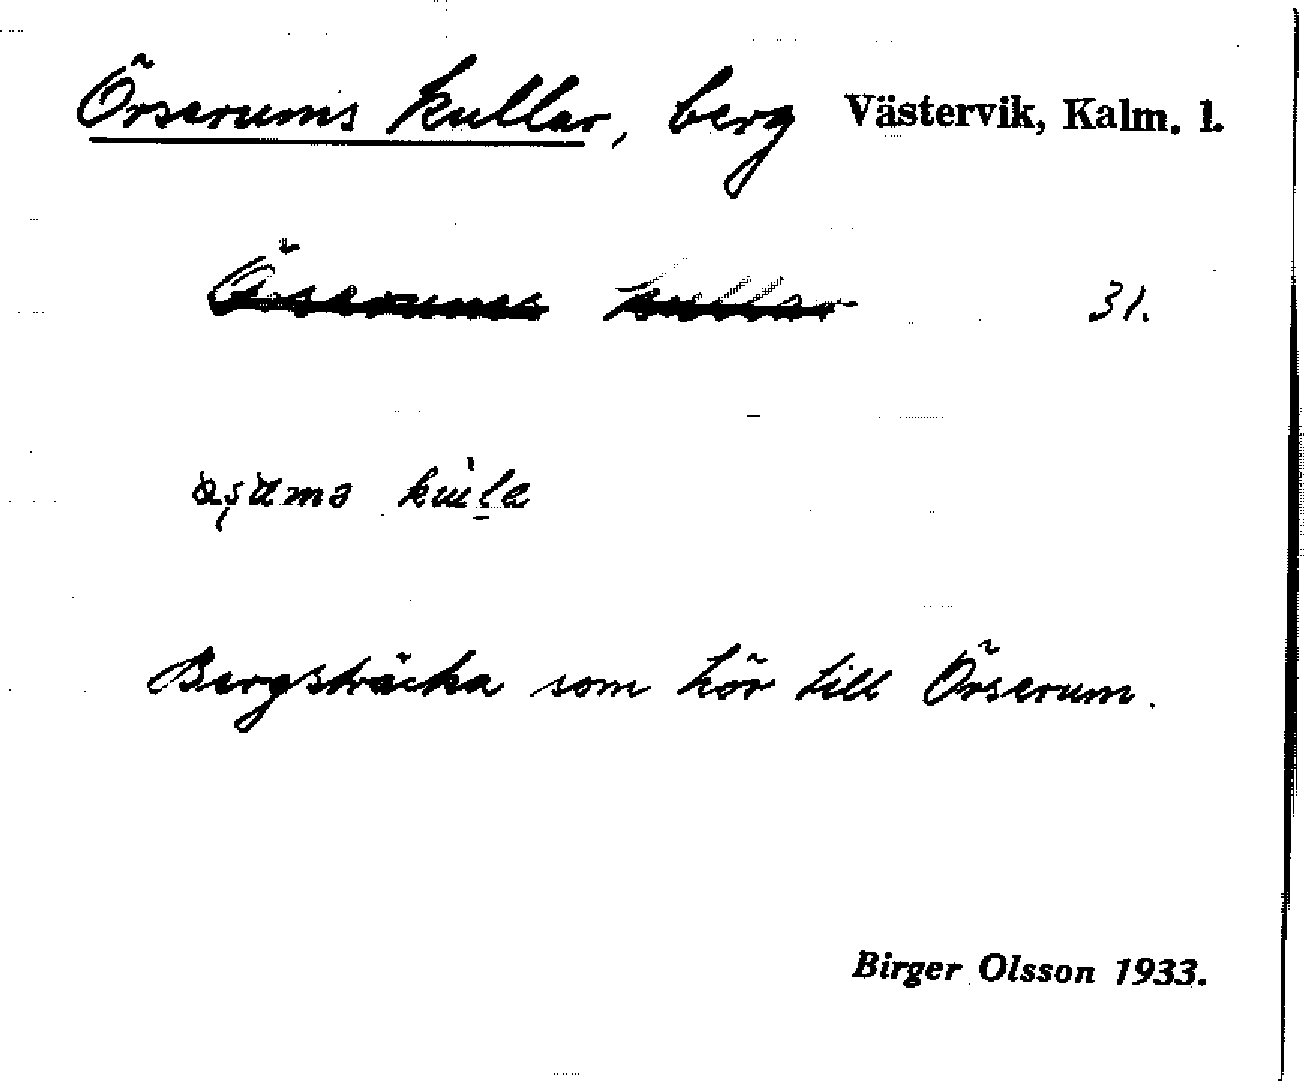 Örserums kullar, berg Västervik, Kalm. l.
Örserums kullar 31.
Bergsträcka som hör till Örserum.
Birger Olsson 1933.